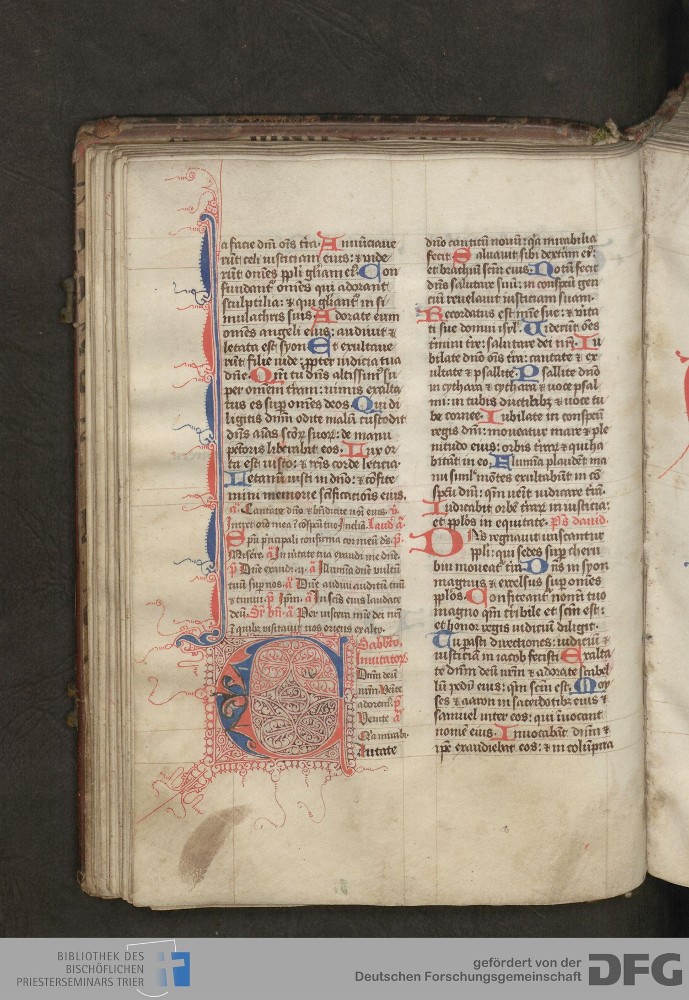 a facie dn̄i om̄s t̄ra. Annūciaue
rūt celi iusticiam eius: ⁊ uide
rūt om̄es ppli gl̄iam ei9. Con
fundant᷑ om̄es qui adorant
sculptilia: ⁊ qui gl̄iant᷑ in si
mulachris suis Adorate eum
om̄es angeli eius: audiuit ⁊
letata est syon Et exultaue
rūt filie iude: ꝓpter iudicia tua
dn̄e. Qm̄ tu dn̄s altissim9 su
per omnem t̄ram: nimis exalta
tus es suꝑ om̄es deos. Qui di
ligitis dn̄m odite malū custodit
dn̄s aīas sctōꝝ suoꝝ: de manu
pctōris liberabit eos. Lux or
ta est iusto: ⁊ rc̄is corde leticia.
Letamī iusti in dn̄o: ⁊ cōfite
mini memorie scīficatiōnis eius.
a᷑. Cantate dn̄o ⁊ bn̄dicite
Intret or̄o mea ī cōspectu tuo Laud᷑ a᷑.
Spū pͥncipali confirma cor meū ds̄. p̄
Misēre. a᷑ In ūitate tua exaudi me dn̄e.
p̄ Dn̄e exaudi. ij. a᷑ Illumīa dn̄e vultū
tuū suꝑ nos. a᷑ Dn̄e audiui auditū tuū
⁊ timui. p̄ Ip̄m. a᷑ In scīs eius laudate
deū. Sr̄ bn̄. a᷑ Per viscera mīe dei nr̄i
ī quibꝫ visitauit nos oriens ex alto.
Sabbato.
Inuitator᷑
Dn̄m deū
nr̄m. Venite
adorem9. p̄
Venite a᷑
Qia mirabi.
Cantate
dn̄o canticū nouū: qͥa mirabilia
fecit. Saluauit sibi dextera ei9:
et brachiū scm̄ eius. Notū fecit
dn̄s salutare suū: in conspectū gen
ciū reuelauit iusticiam suam.
Recordatus est mīe sue: ⁊ ūita
ti sue domui isrl̄. Viderūt om̄es
t̄mini t̄re: salutare dei nr̄i. Iu
bilate dn̄o om̄s t̄ra: cantate ⁊ ex
ultate ⁊ psallite. Psallite dn̄o
in cythara ī cythara ⁊ uoce psal
mi: in tubis ductilibꝫ ⁊ uoce tu
be cornee. Iubilate in conspectū
regis dn̄i: moueatur mare ⁊ ple
nitudo eius: orbis t̄raꝝ ⁊ qui ha
bitāt in eo. Flumīa plaudēt ma
nu simul mōtes exultabūt in cō
spectū dn̄i: qm̄ uēit iudicare t̄rā.
Iudicabit orbē t̄raꝝ in iusticia:
et pplōs in equitate. Ps̄ dauid.
Dn̄s regnauit irascantur
ppli: qui sedes suꝑ cheru
bin moueat᷑ t̄ra. Dn̄s in syon
magnus: ⁊ excelsus suꝑ om̄es
pplōs. Confiteant᷑ nomī tuo
magno qm̄ t̄ribile et scm̄ est:
et honor regis iudiciū diligit.
Tu parasti directiones: iudiciū ⁊
iusticiā in iacob fecisti. Exalta
te dn̄m deū nr̄m ⁊ adorate scabel
lū pedū eius: qm̄ scm̄ est. Moy
ses ⁊ aaron in sacerdotibꝫ eius ⁊
samuel inter eos: qui īuocant
nomē eius. Inuocabāt dn̄m ⁊
ipē exaudiebat eos: ⁊ in colūpna
BIBLIOTHEK DES
BISCHÖFLICHEN
PRIESTERSEMINARS TRIER
gefördert von der
Deutschen Forschungsgemeinschaft
DFG